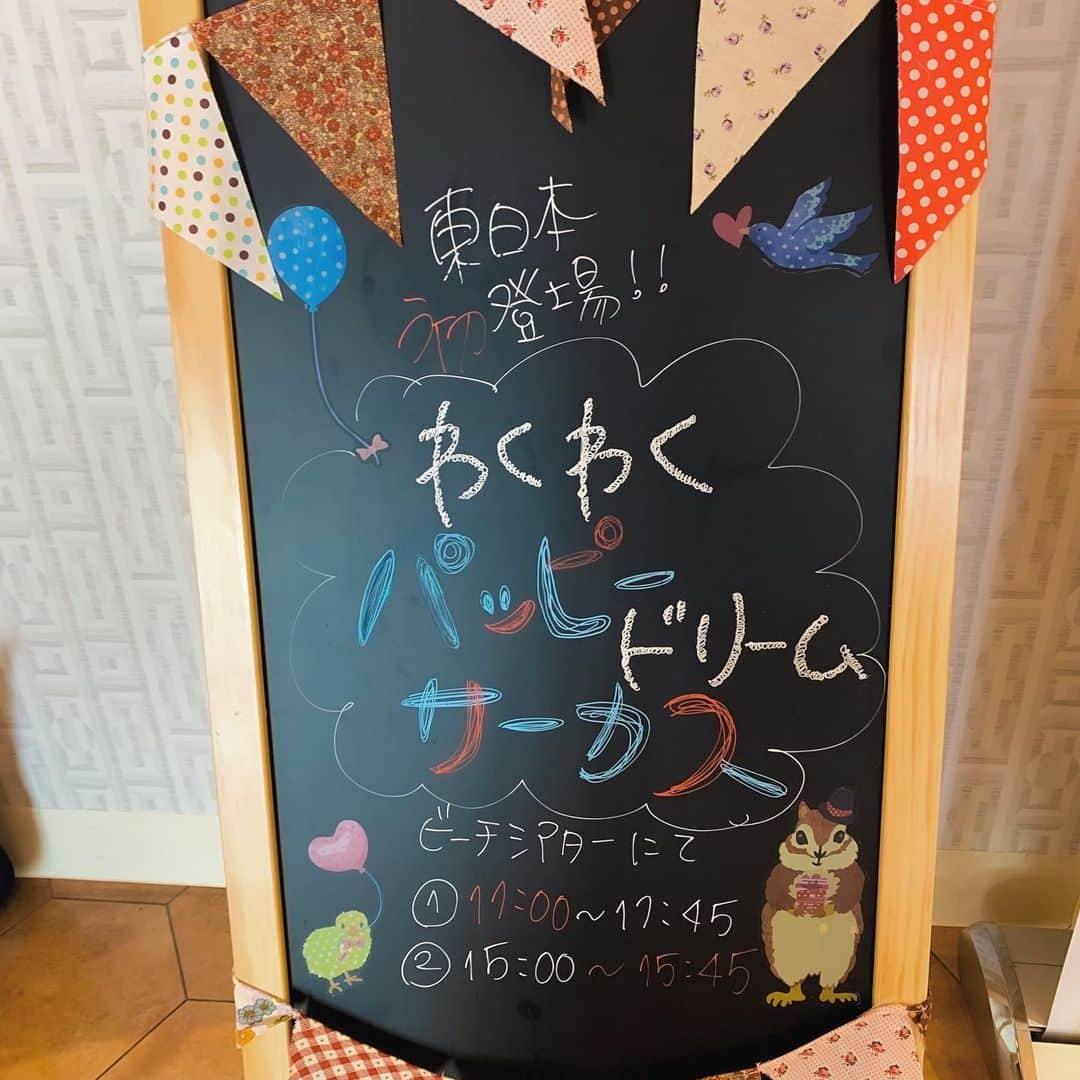 東日本
初登場!!
わくわく
パッピー
ドリーム
サーカス
ビーチシアターにて
① 11:00～11:45
② 15:00～15:45